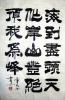 海到盡頭天
作岸山登絕
頂我為峰